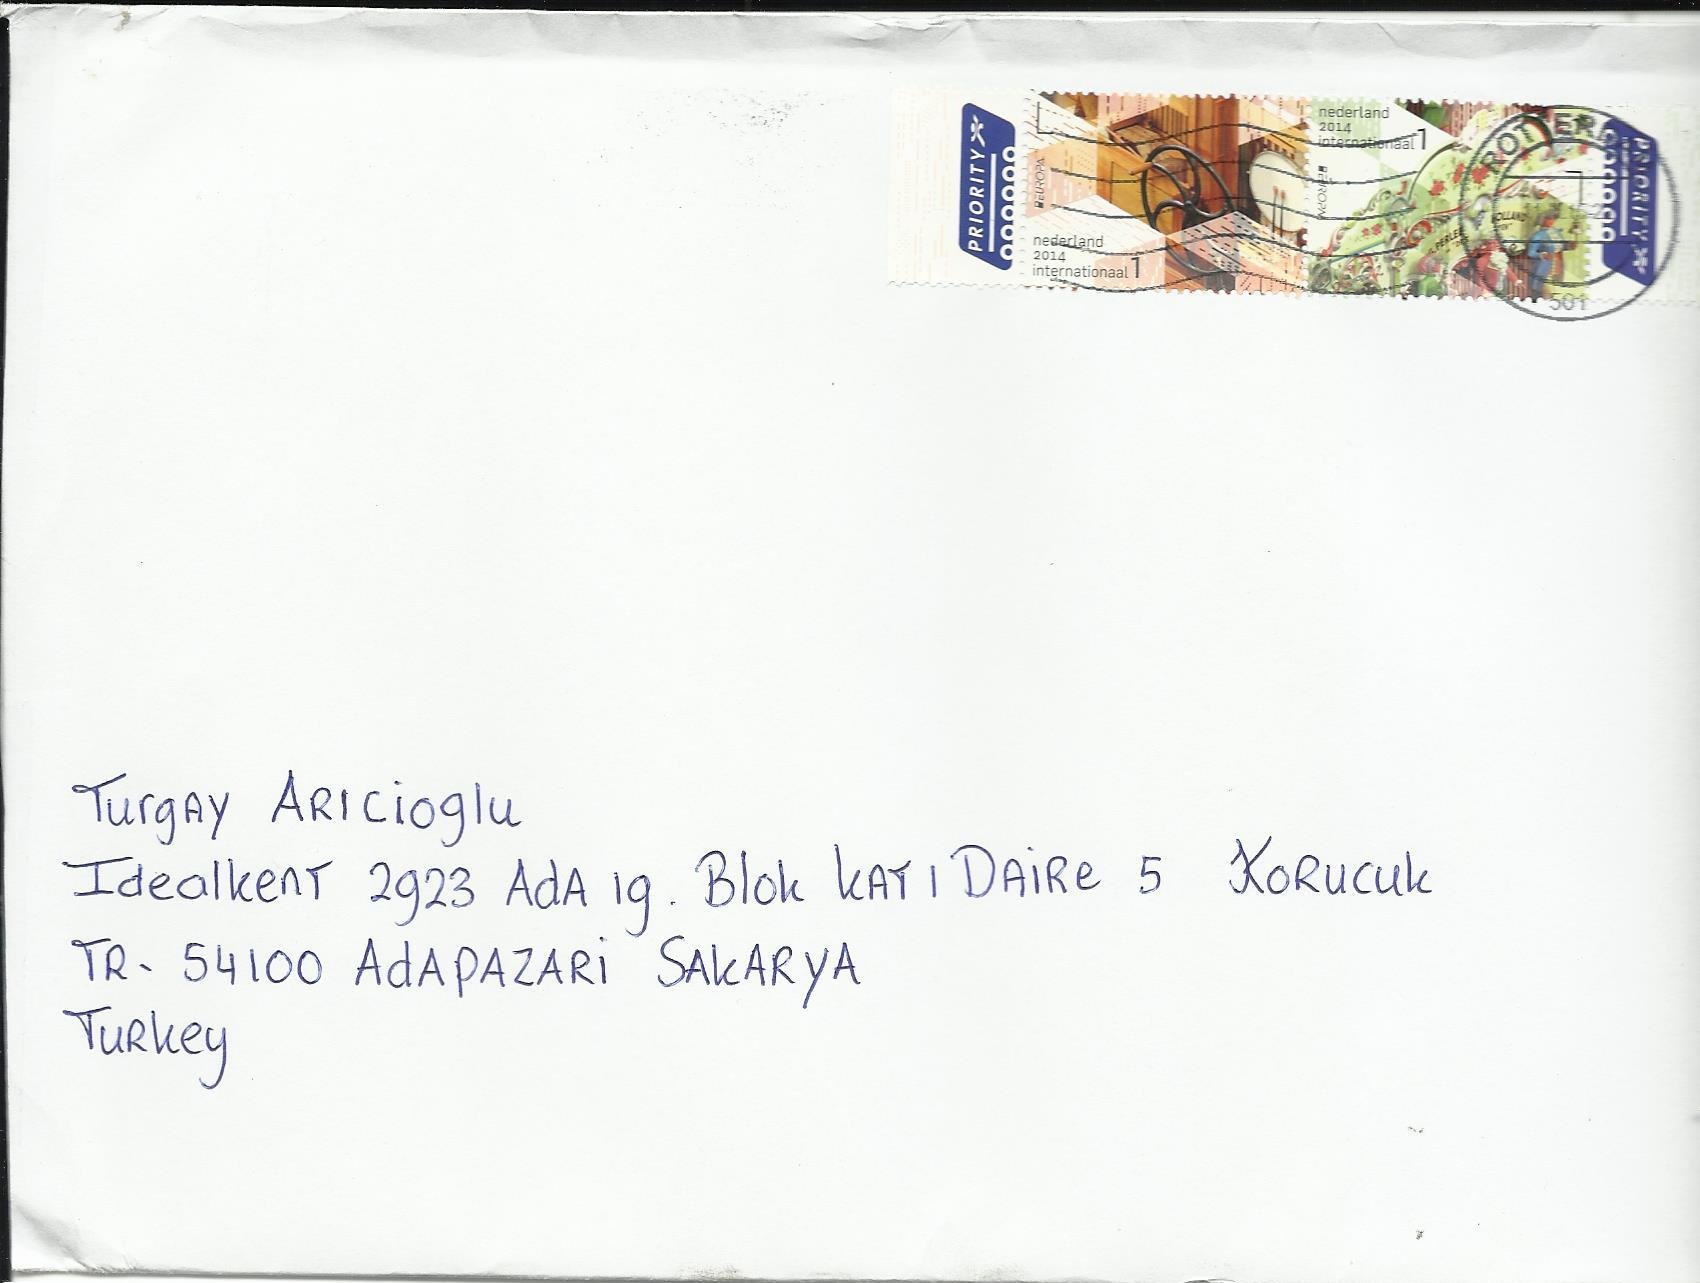 PRIORITY
EUROPA
nederland
2014
internationaal 1
nederland
2014
internationaal 1
EUROPA
HOLLAND
PRIORITY
501
Turgay Aricioglu
Idealkent 2923 Ada 19. Blok Kat 1 Daire 5 Korucuk
TR- 54100 Adapazari Sakarya
Turkey